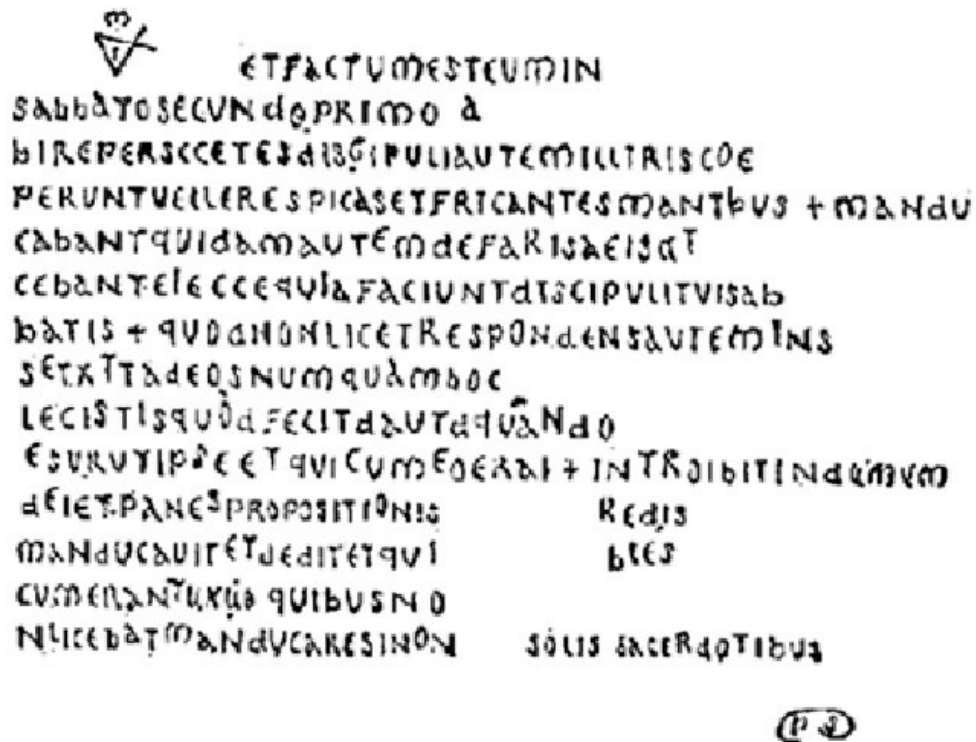 ETFACTUMESTCUMIN
SABBATOSECUNDOPRIMO A
BIREPERSCCETESDISGIPULIAUTEMILLITRISCOE
PERUNTVELLERESPICASETFRICANTESMANTBUS + MANDU
CABANTQUIDAMAUTEMDEFARISAEISDT
CEBANTEIECCEQUIAFACIUNTDISCIPULITVISAB
BATIS + QUODNONLICETRESPONDENSAUTEMINS
SETXTTADEOSNUMQUAMBOC
LECISTISQUODFECITDAUTDQUANDO
ESURUTIPSEETQUICUMEOERAI + INTROIBITINDEMUM
DEIETPANESPROPOSITIONIS REDIS
MANDUCAUITETDEDITETQUI BLES
CUMERANTUXUS QUIBUSNO
NLICEBATMANDUCARESINON SOLIS SACERDOTIBUS
PS